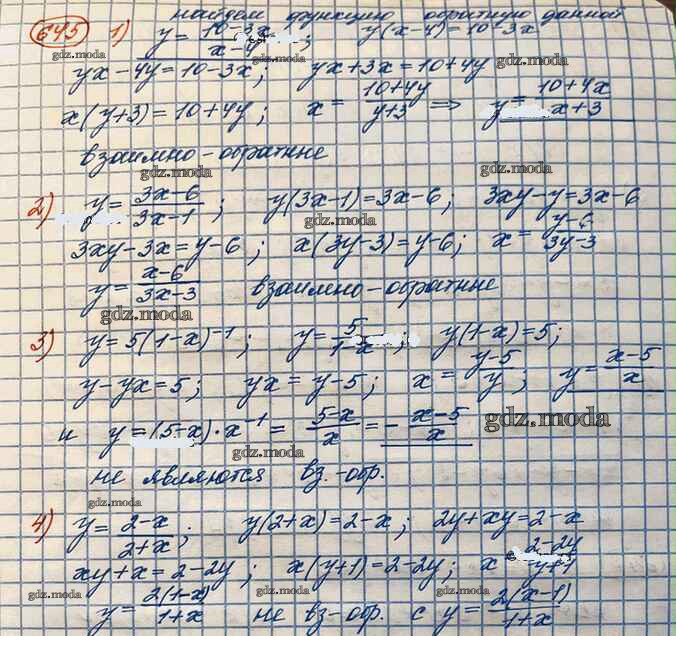 найдем функцию обратную данной
645 1) y = 10-3x / x-4 ; y(x-4) = 10-3x
gdz.moda
yx-4y = 10-3x ; yx+3x = 10+4y
gdz.moda
x(y+3) = 10+4y ; x = 10+4y / y+3 ⇒ y = 10+4x / x+3
взаимно-обратные
gdz.moda gdz.moda
2) y = 3x-6 / 3x-1 ; y(3x-1) = 3x-6 ; 3xy-y = 3x-6
gdz.moda
3xy-3x = y-6 ; x(3y-3) = y-6 ; x = y-6 / 3y-3
y = x-6 / 3x-3 взаимно-обратные
gdz.moda
3) y = 5(1-x)⁻¹ ; y = 5 / 1-x ; y(1-x) = 5 ;
y-yx = 5 ; yx = y-5 ; x = y-5 / y ; y = x-5 / x
и y = (5-x)·x⁻¹ = 5-x / x = - x-5 / x
gdz.moda
gdz.moda
не являются вз.-обр.
gdz.moda
4) y = 2-x / 2+x ; y(2+x) = 2-x ; 2y+xy = 2-x
xy+x = 2-2y ; x(y+1) = 2-2y ; x = 2-2y / y+1
gdz.moda gdz.moda gdz.moda
y = 2(1-x) / 1+x не вз-обр. с y = 2(x-1) / 1+x